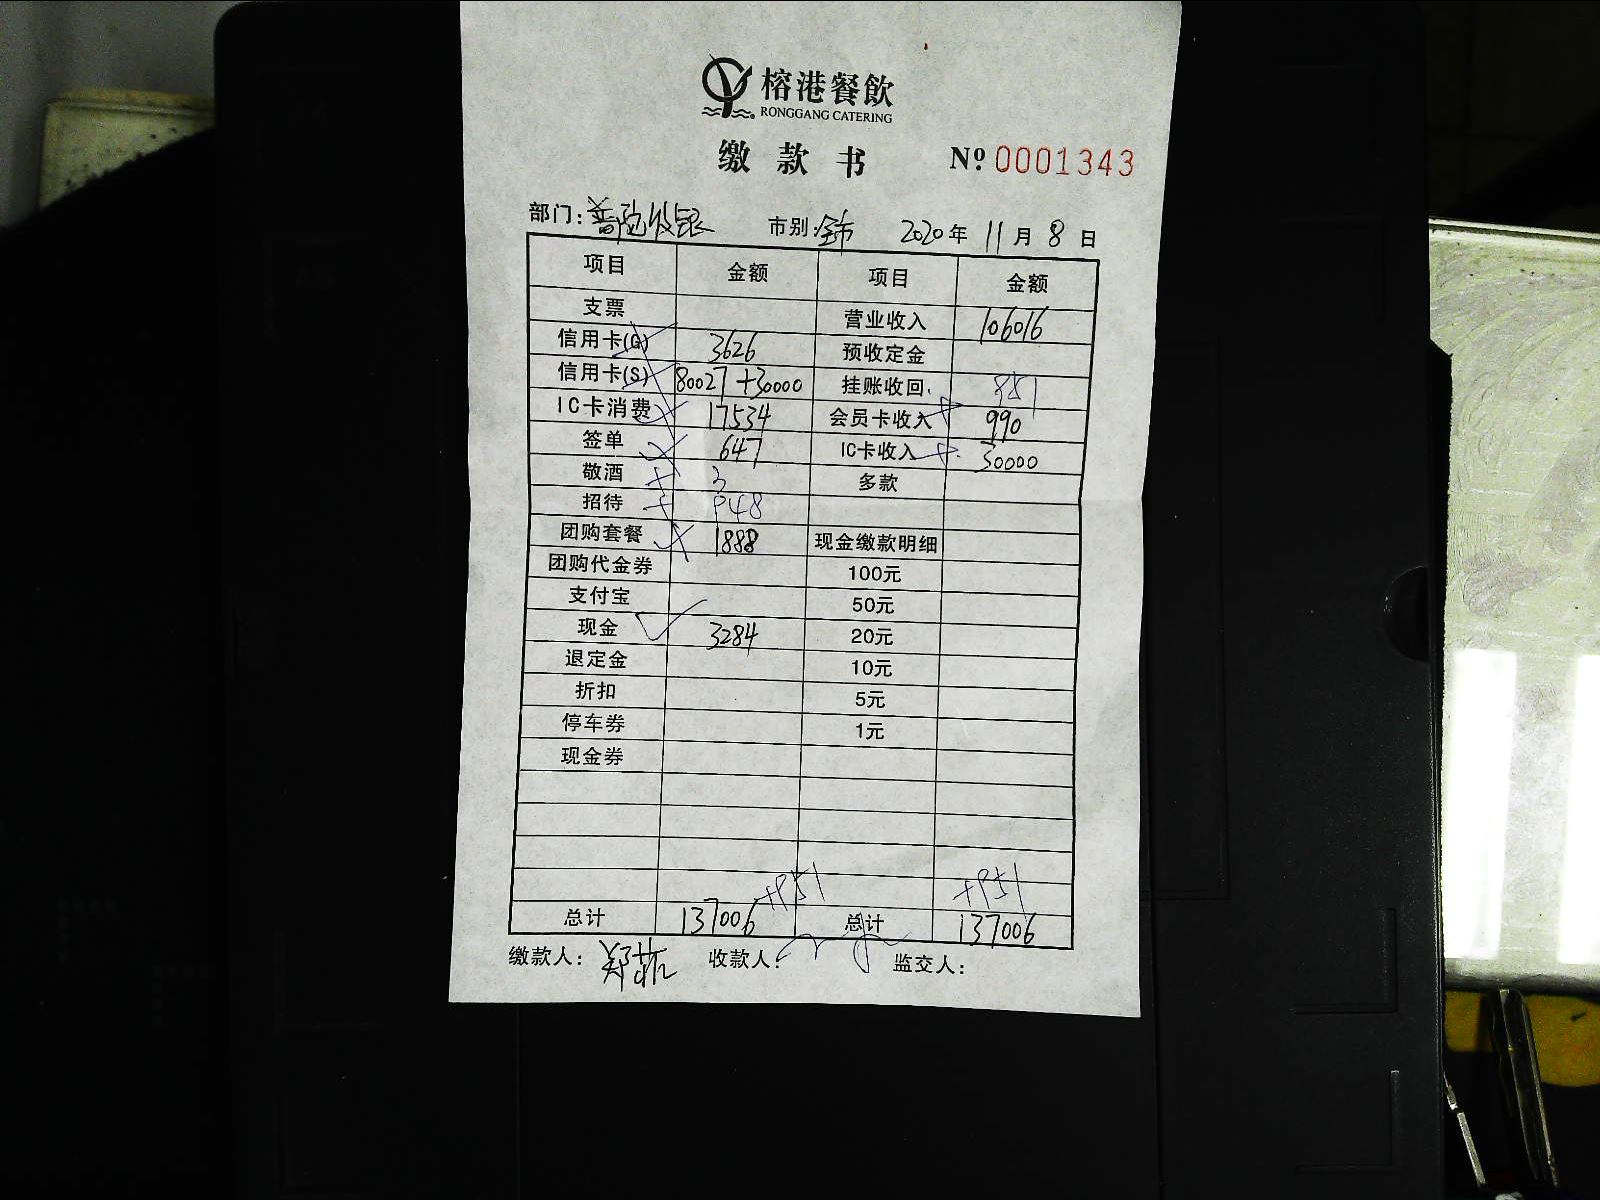 榕港餐飲
RONGGANG CATERING
缴款书 № 0001343
部门: 普陀收银 市别: 全市 2020年 11月 8日
项目 金额 项目 金额
支票 营业收入 106016
信用卡(G) 3626 预收定金
信用卡(S) 80027+30000 挂账收回 851
IC卡消费 17534 会员卡收入 990
签单 647 IC卡收入 30000
敬酒 3 多款
招待 848
团购套餐 1888 现金缴款明细
团购代金券 100元
支付宝 50元
现金 3284 20元
退定金 10元
折扣 5元
停车券 1元
现金券
+851 +851
总计 137006 总计 137006
缴款人: 郑 收款人: 监交人: